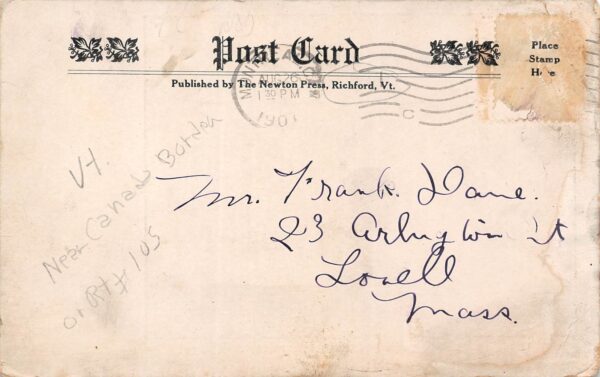 Post Card
Place
Stamp
Here
Published by The Newton Press, Richford, Vt.
AUG 26
1 30 PM
1907
C
Vt.
Near Canada Border
on Rt # 105
Mr. Frank. Dane.
23 Arlington St
Lowell
Mass.